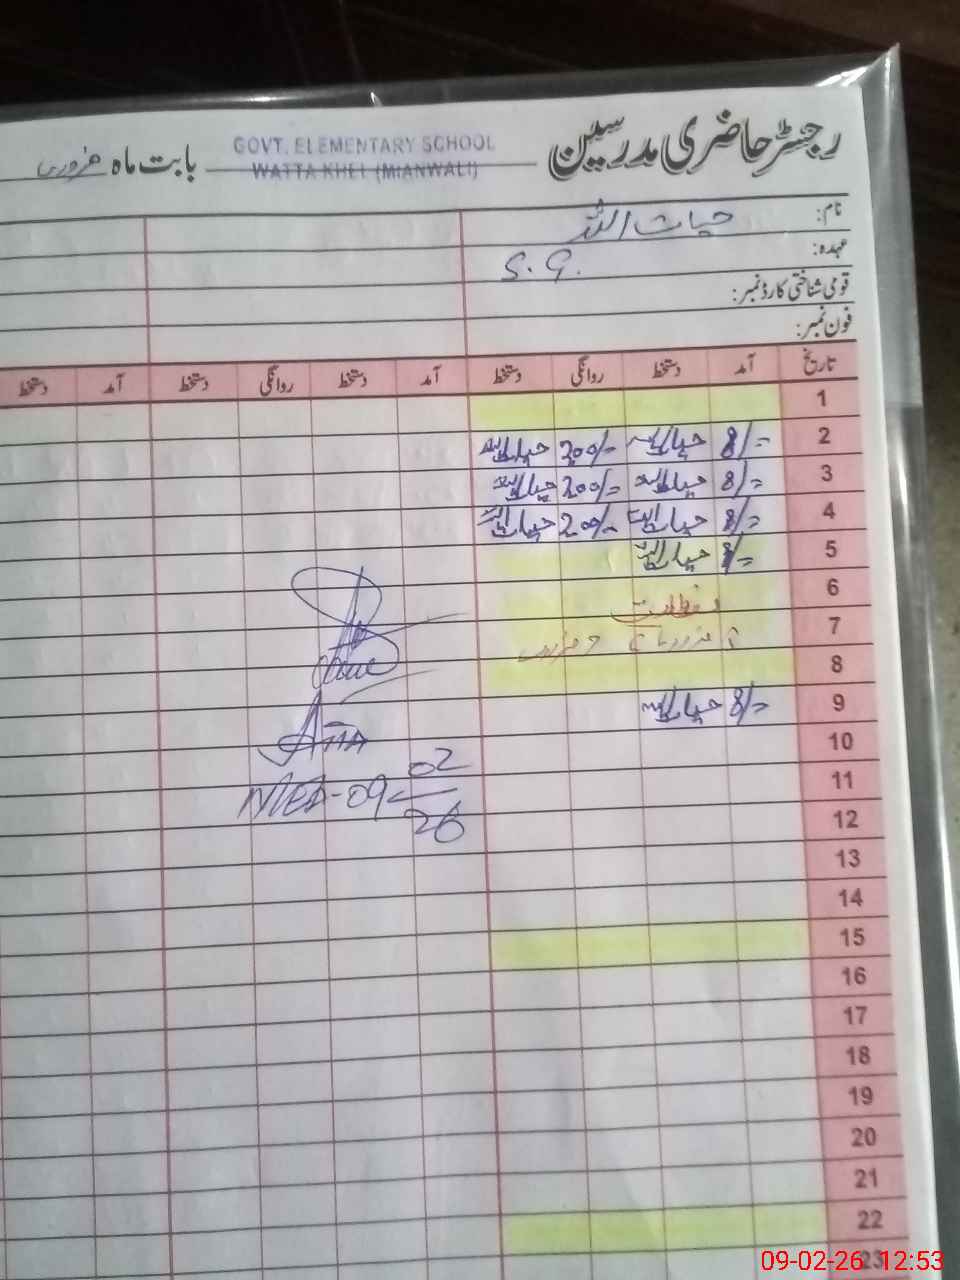 رجسٹر حاضری مدرسین GOVT. ELEMENTARY SCHOOL WATTA KHEL (MIANWALI) بابت ماہ فروری
نام: حیات اللہ
عہدہ: S.G.
قومی شناختی کارڈ نمبر:
فون نمبر:
تاریخ آمد دستخط روانگی دستخط آمد دستخط روانگی دستخط آمد دستخط
1
2 8/= حیات اللہ 200/= حیات اللہ
3 8/= حیات اللہ 200/= حیات اللہ
4 8/= حیات اللہ 200/= حیات اللہ
5 8/= حیات اللہ
6
7
8
9 8/= حیات اللہ
10
11
09-02/26
12
13
14
15
16
17
18
19
20
21
22
23
09-02-26 12:53